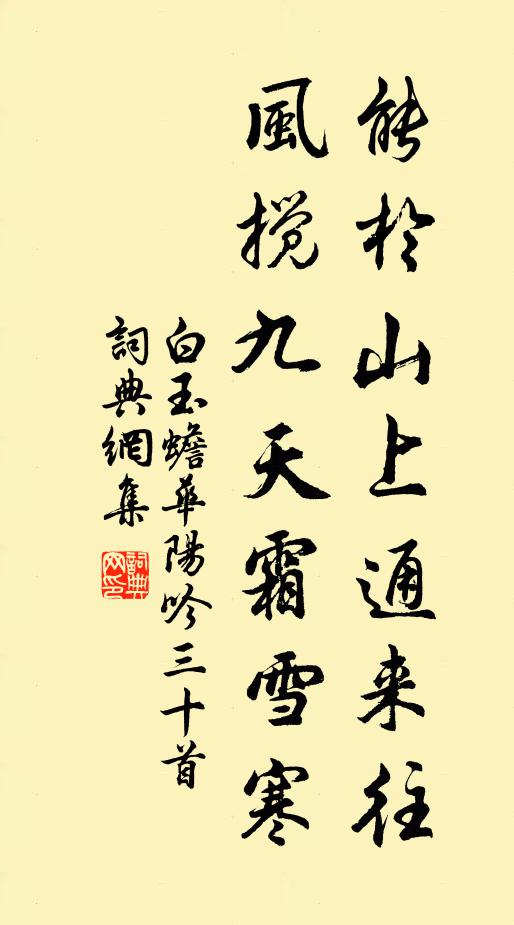 能於山上通来往
風攪九天霜雪寒
白玉蟾華陽吟三十首
詞典網集
詞典
网印